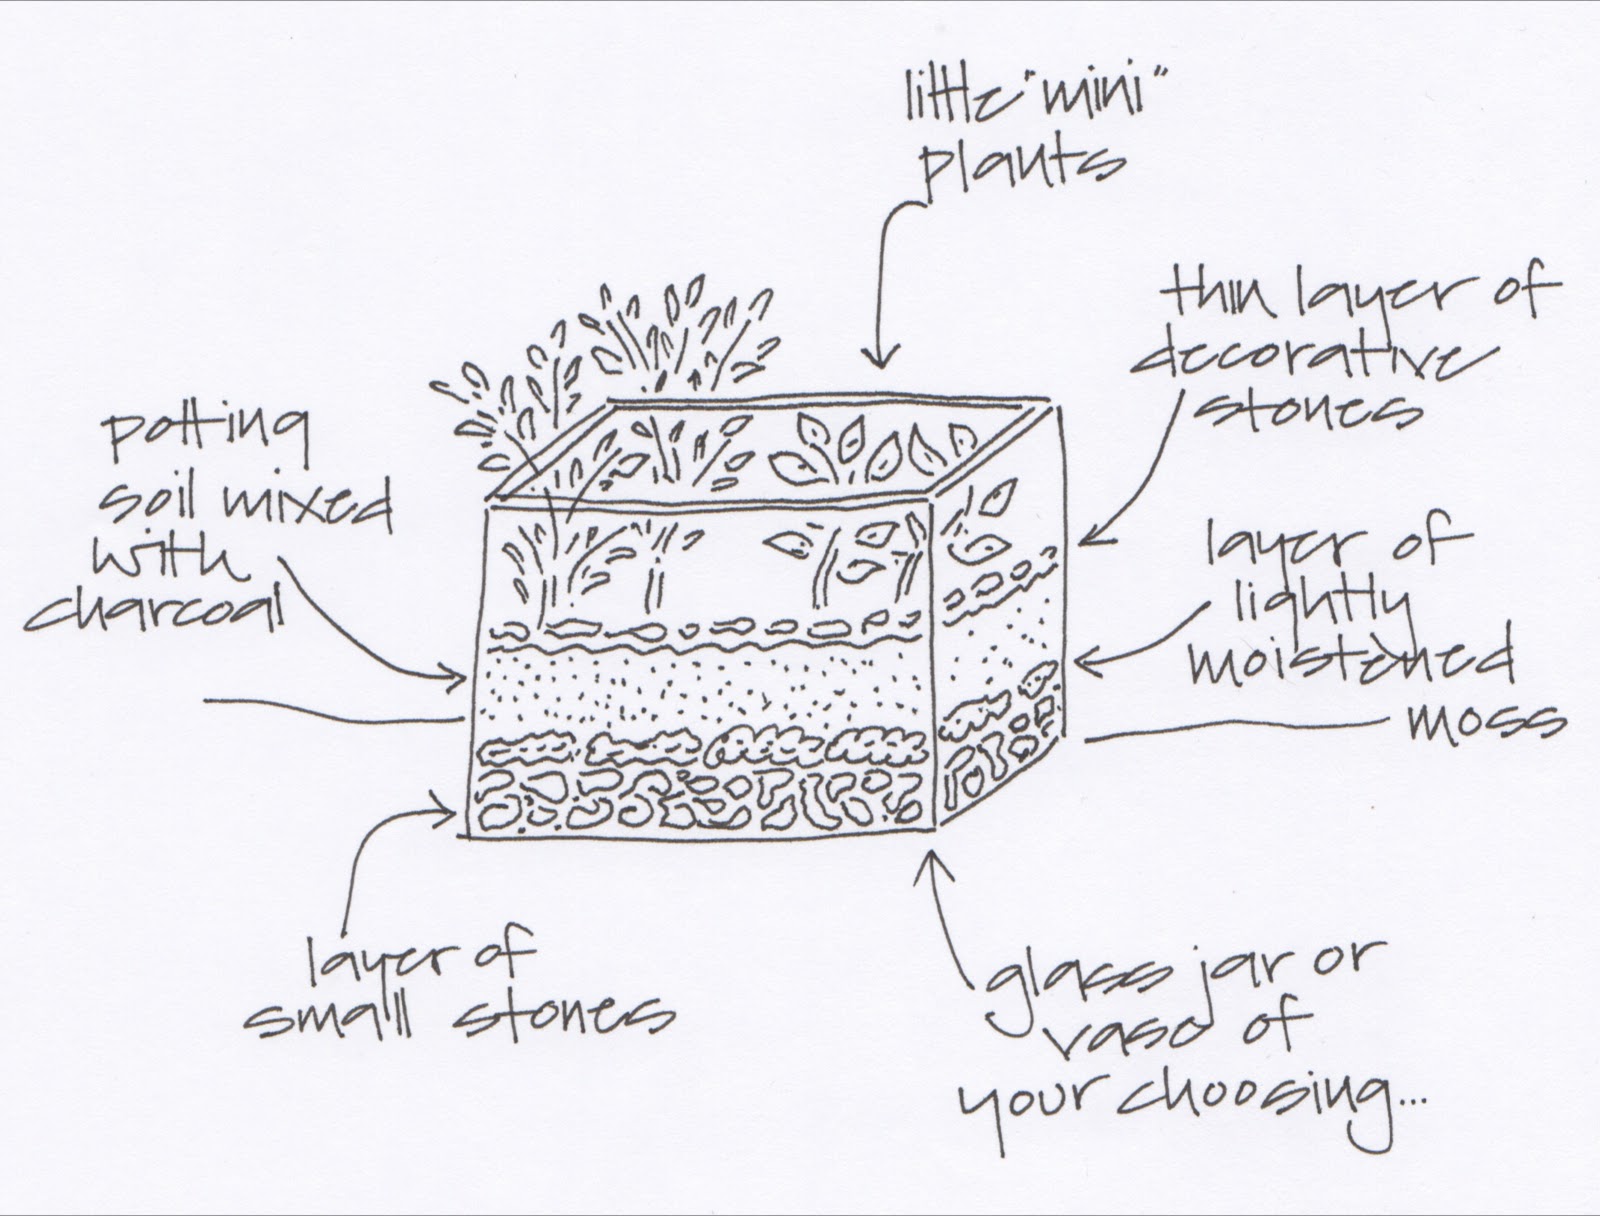 little "mini"
plants
thin layer of
decorative
stones
potting
soil mixed
with
charcoal
layer of
lightly
moistened
moss
layer of
small stones
glass jar or
vase of
your choosing...